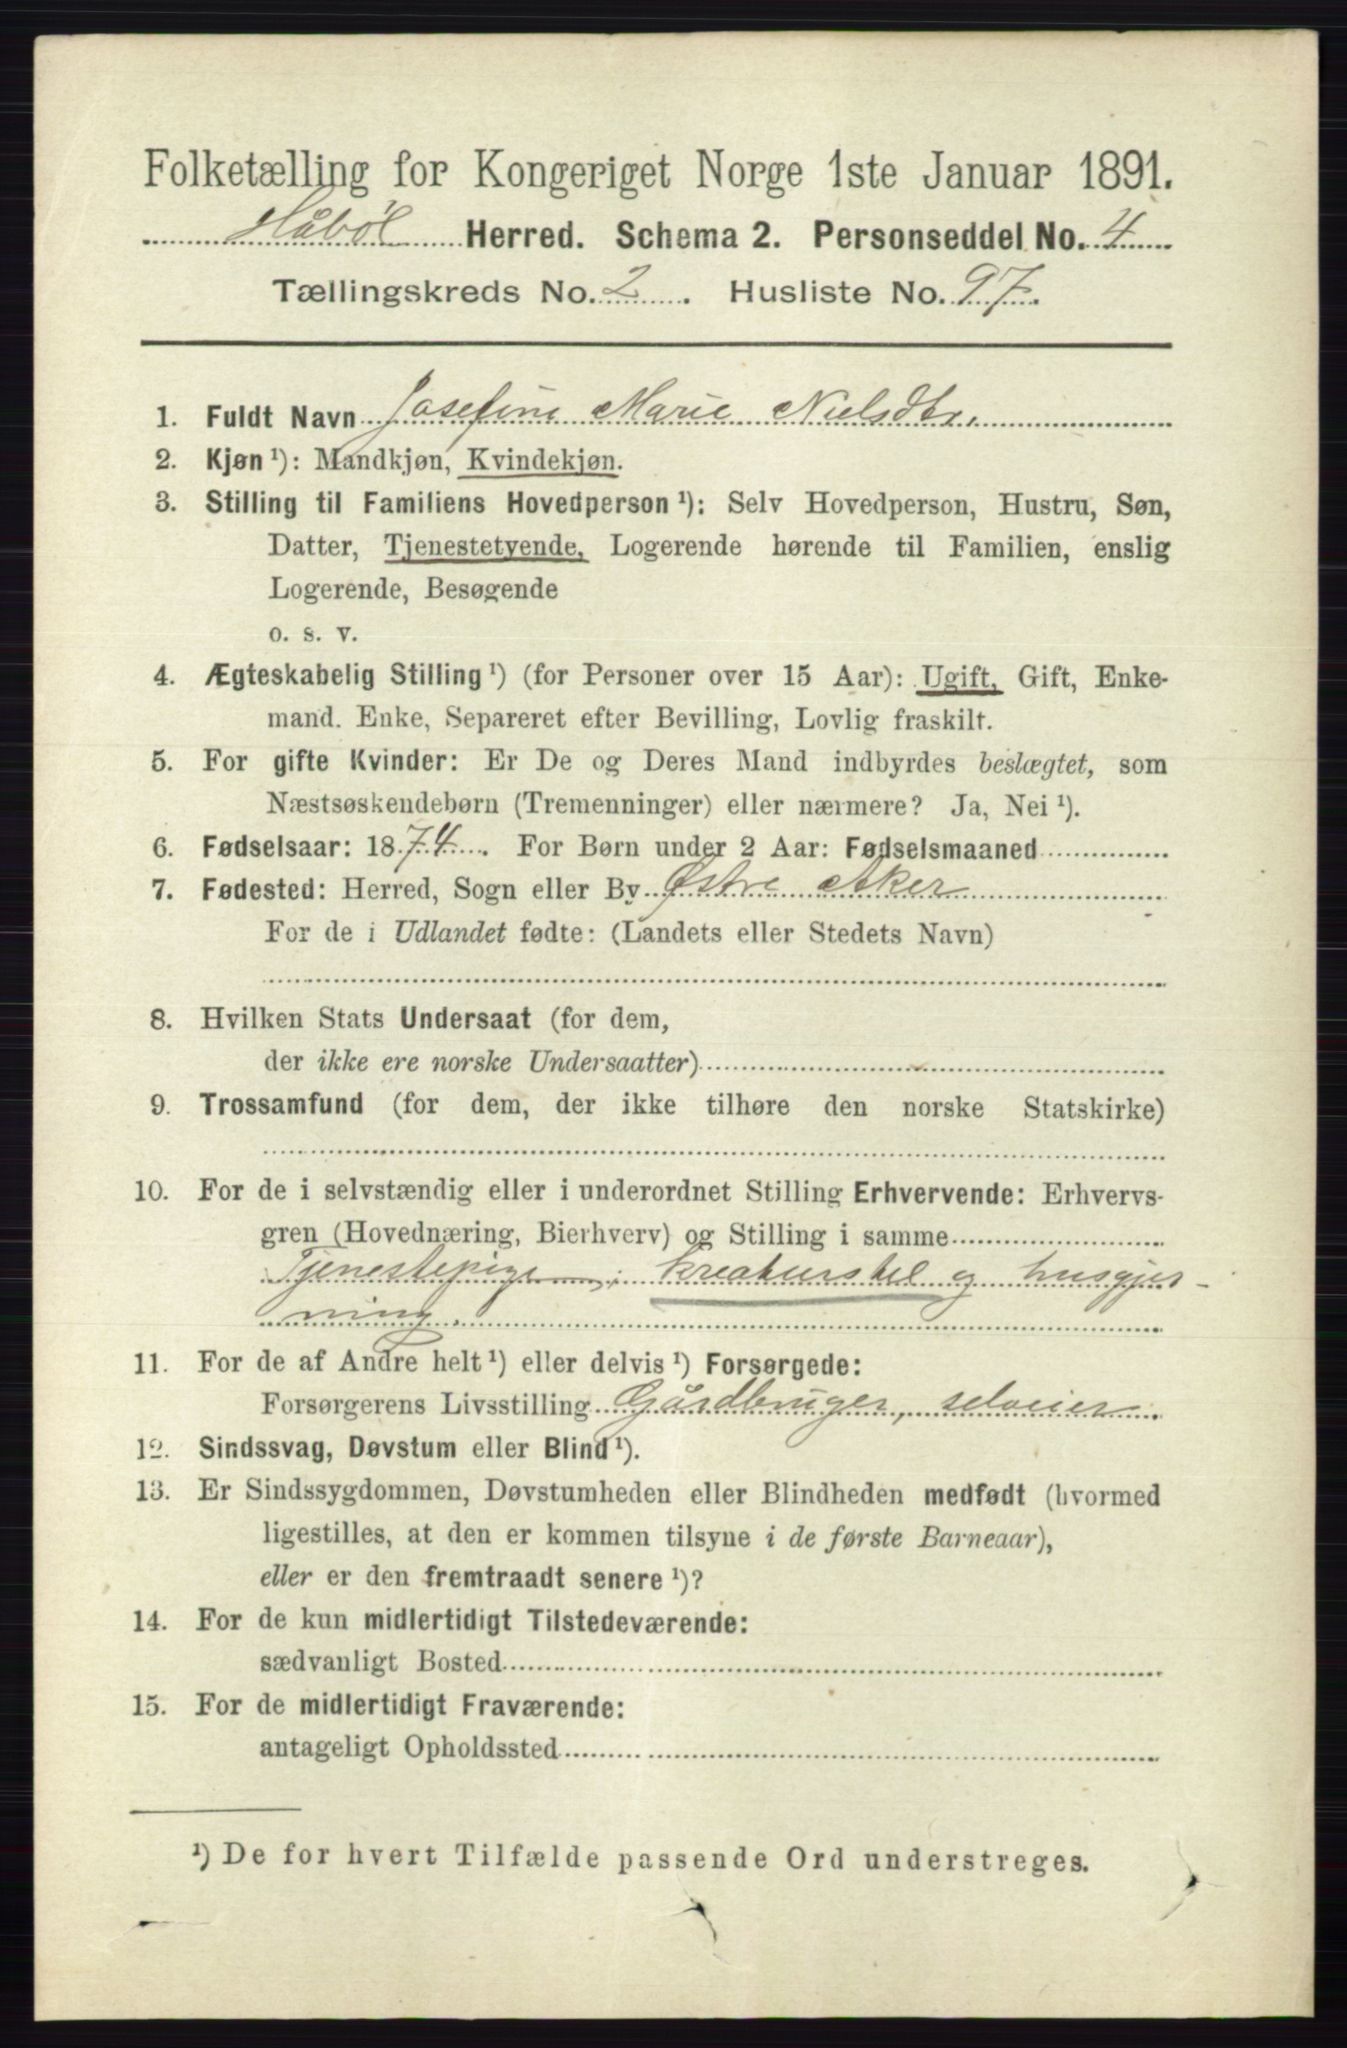 Folketælling for Kongeriget Norge 1ste Januar 1891.
Håbøl Herred. Schema 2. Personseddel No. 4
Tællingskreds No. 2. Husliste No. 97
1. Fuldt Navn Josefine Marie Nielsdtr.
2. Kjøn ¹): Mandkjøn, Kvindekjøn.
3. Stilling til Familiens Hovedperson ¹): Selv Hovedperson, Hustru, Søn,
Datter, Tjenestetyende, Logerende hørende til Familien, enslig
Logerende, Besøgende
o. s. v.
4. Ægteskabelig Stilling ¹) (for Personer over 15 Aar): Ugift, Gift, Enke-
mand. Enke, Separeret efter Bevilling, Lovlig fraskilt.
5. For gifte Kvinder: Er De og Deres Mand indbyrdes beslægtet, som
Næstsøskendebørn (Tremenninger) eller nærmere? Ja, Nei ¹).
6. Fødselsaar: 1874. For Børn under 2 Aar: Fødselsmaaned
7. Fødested: Herred, Sogn eller By Østre Aker
For de i Udlandet fødte: (Landets eller Stedets Navn)
8. Hvilken Stats Undersaat (for dem,
der ikke ere norske Undersaatter)
9. Trossamfund (for dem, der ikke tilhøre den norske Statskirke)
10. For de i selvstændig eller i underordnet Stilling Erhvervende: Erhvervs-
gren (Hovednæring, Bierhverv) og Stilling i samme
Tjenestepige, i kreaturstel og husgjer-
ning.
11. For de af Andre helt ¹) eller delvis ¹) Forsørgede:
Forsørgerens Livsstilling Gårdbruger, selveier.
12. Sindssvag, Døvstum eller Blind ¹).
13. Er Sindssygdommen, Døvstumheden eller Blindheden medfødt (hvormed
ligestilles, at den er kommen tilsyne i de første Barneaar),
eller er den fremtraadt senere ¹)?
14. For de kun midlertidigt Tilstedeværende:
sædvanligt Bosted
15. For de midlertidigt Fraværende:
antageligt Opholdssted
¹) De for hvert Tilfælde passende Ord understreges.